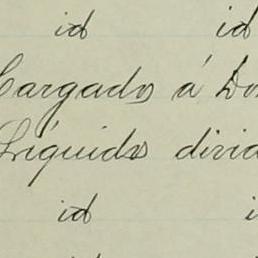 id id
Cargados á Do
Líquidos divid
id i